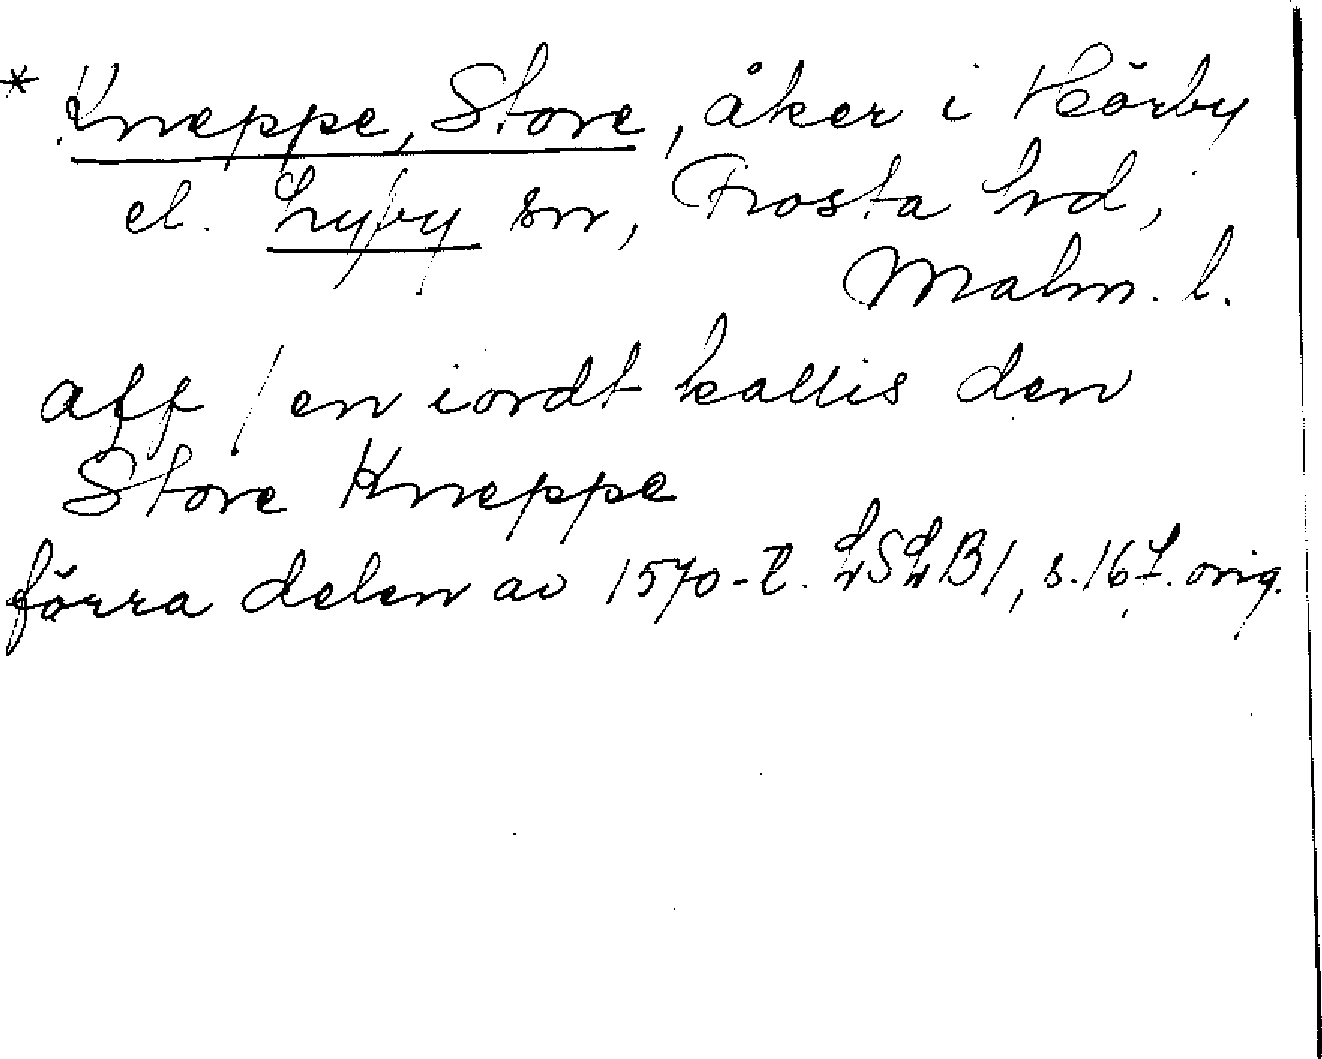 * Kneppe, Store, åker i Hörby
el. Lyby sn, Frosta hd,
Malm. l.
aff / en iordt kallis den
Store Kneppe
förra delen av 1570-t. LSLB1, s. 167. orig.